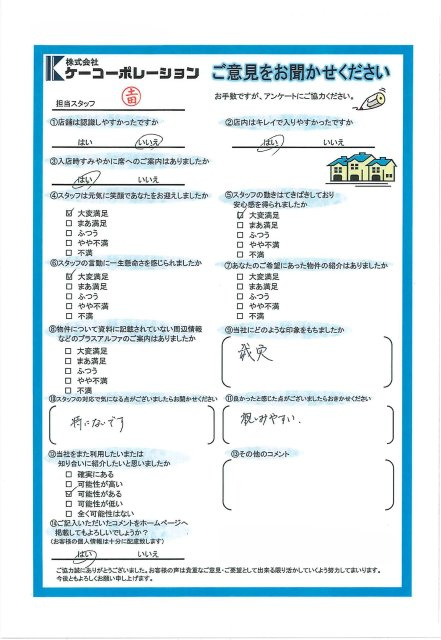 株式会社
ケーコーポレーション
ご意見をお聞かせください
担当スタッフ
お手数ですが、アンケートにご協力ください。
①店舗は認識しやすかったですか
はい いいえ
②店内はキレイで入りやすかったですか
はい いいえ
③入店時すみやかに席へのご案内はありましたか
はい いいえ
④スタッフは元気に笑顔であなたをお迎えしましたか
大変満足
まあ満足
ふつう
やや不満
不満
⑤スタッフの動きはてきぱきしており
安心感を得られましたか
大変満足
まあ満足
ふつう
やや不満
不満
⑥スタッフの言動に一生懸命さを感じられましたか
大変満足
まあ満足
ふつう
やや不満
不満
⑦あなたのご希望にあった物件の紹介はありましたか
大変満足
まあ満足
ふつう
やや不満
不満
⑧物件について資料に記載されていない周辺情報
などのプラスアルファのご案内はありましたか
大変満足
まあ満足
ふつう
やや不満
不満
⑨当社にどのような印象をもちましたか
誠実
⑩スタッフの対応で気になる点がございましたらお聞かせください
特にないです
⑪良かったと感じた点がございましたらおきかせください
親しみやすい、
⑫当社をまた利用したいまたは
知り合いに紹介したいと思いましたか
確実にある
可能性が高い
可能性がある
可能性が低い
全く可能性はない
⑬その他のコメント
⑭ご記入いただいたコメントをホームページへ
掲載してもよろしいでしょうか?
(お客様の個人情報は十分に配慮致します)
はい いいえ
ご協力誠にありがとうございました。お客様の声は貴重なご意見・ご要望として出来る限り活かしていくよう努力してまいります。
今後ともよろしくお願い申し上げます。